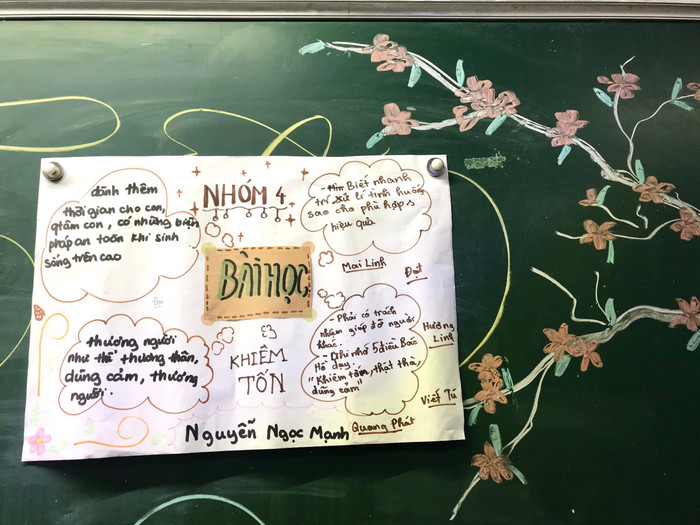 NHÓM 4
dành thêm
thời gian cho con,
qtâm con, có những biện
pháp an toàn khi sinh
sống trên cao
Biết nhanh
trí xử lí tình huống
sao cho phù hợp
hiệu quả
Mai Linh
Đạt
BÀI HỌC
thương người
như thể thương thân,
dũng cảm, thương
người.
KHIÊM
TỐN
- Phải có trách
nhiệm giúp đỡ người
khác.
- Ghi nhớ 5 điều Bác
Hồ dạy
"Khiêm tốn, thật thà,
dũng cảm"
Hương
Linh
Viết Tú
Quang Phát
Nguyễn Ngọc Mạnh